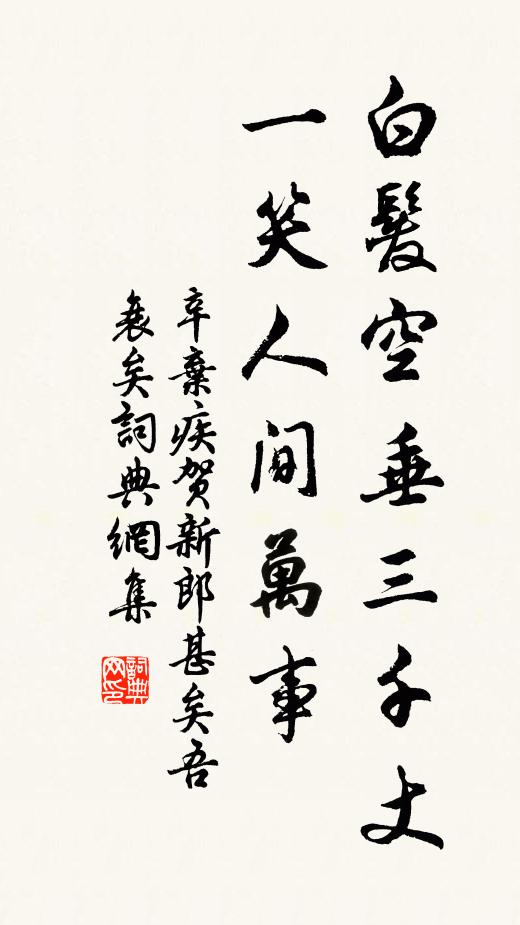 白髮空垂三千丈
一笑人間萬事
辛棄疾賀新郎甚矣吾
衰矣詞典網集
詞典網印